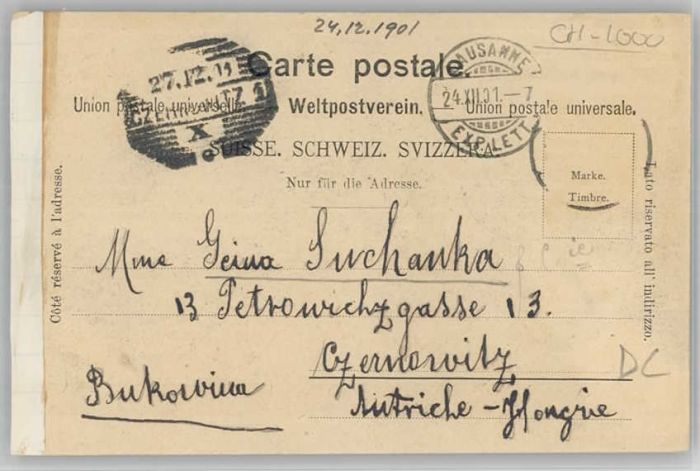 24.12.1901
CH-1000
Carte postale.
Union postale universelle. Weltpostverein. Union postale universale.
27.12.
CZERNOWITZ 1
X
LAUSANNE
24.XII.01.-7
EXP. LETT.
SUISSE. SCHWEIZ. SVIZZERA.
Nur für die Adresse.
Marke.
Timbre.
Côté réservé à l'adresse.
Lato riservato all' indirizzo.
Mme Geina Suchanka
13 Petrowichzgasse 13.
Czernowitz
Bukowina
Autriche-Hongrie
DC